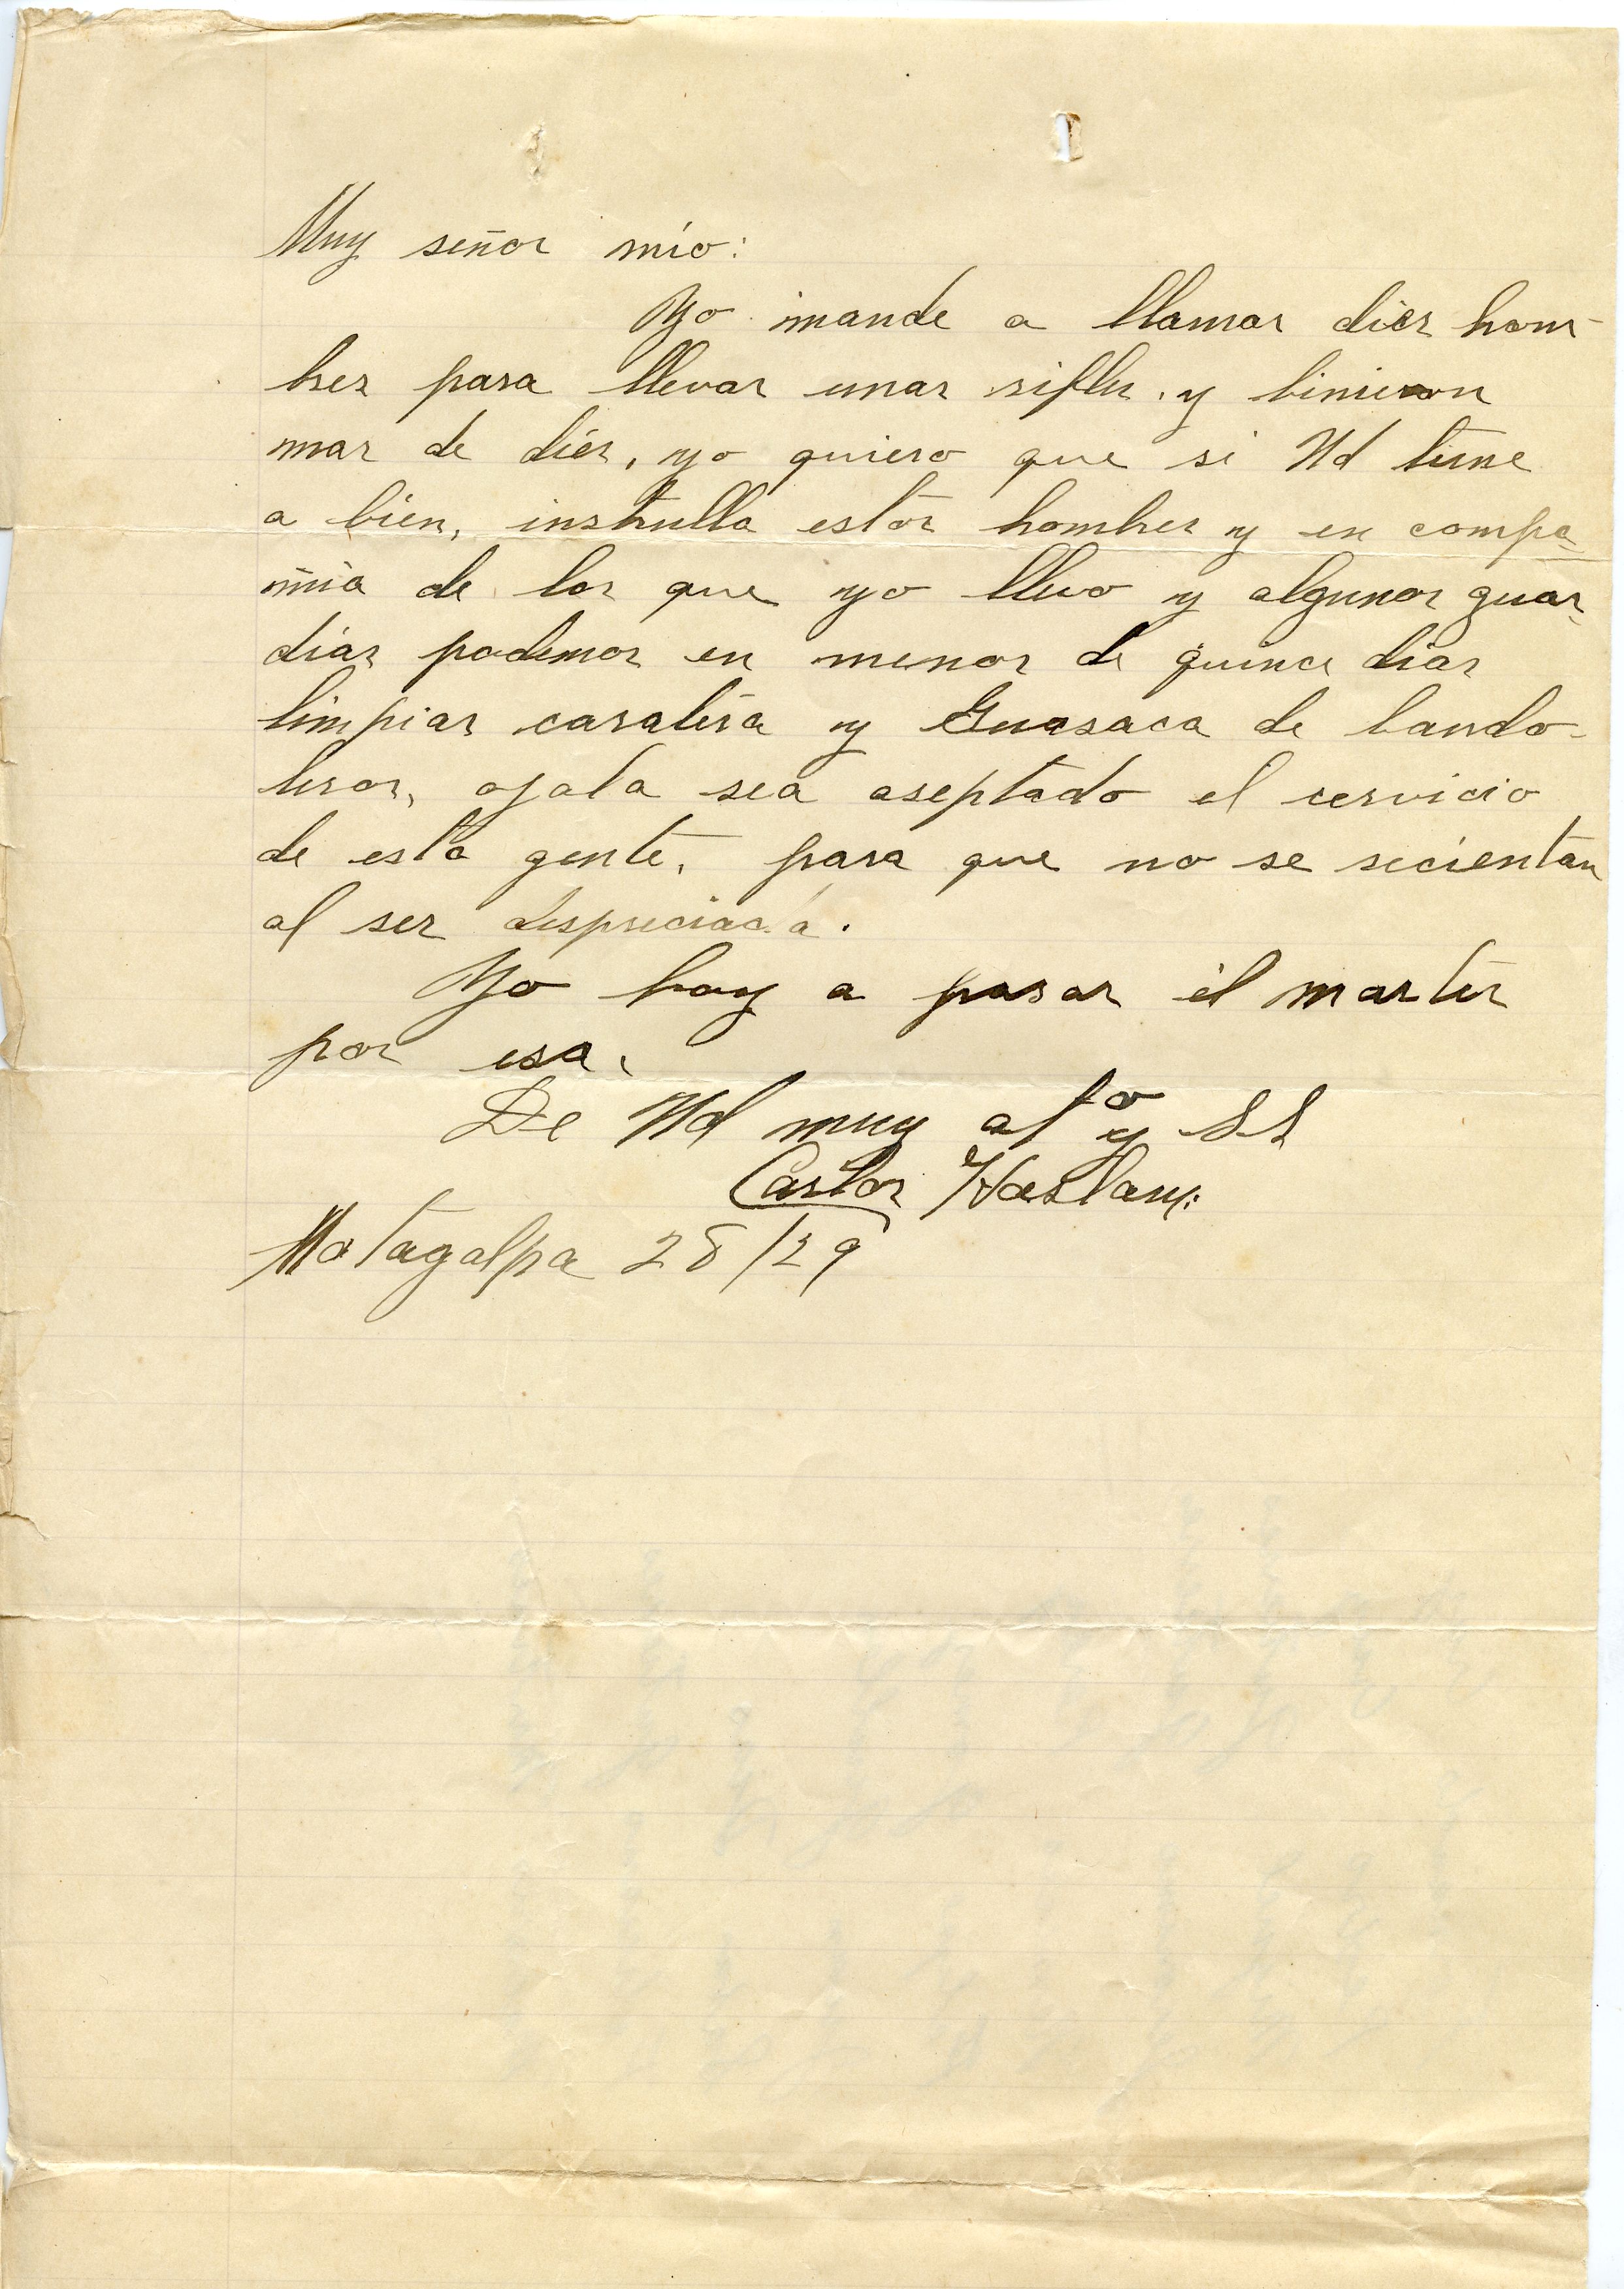 Muy señor mío:
Yo mande a llamar diez hom-
bres para llevar unas rifles. y binieron
mas de diez, yo quiero que si Ud tiene
a bien, instrulla estos hombres y en compa-
ñia de los que yo llevo y algunos guar-
dias podemos en menos de quince dias
limpiar caratera y Guasaca de bando-
leros, ojala sea aseptado el servicio
de esta gente, para que no se recientan
al ser despreciada.
Yo boy a pasar el martes
por esa.
De Ud muy afº y SS
Carlos Haslam.
Matagalpa 28/29